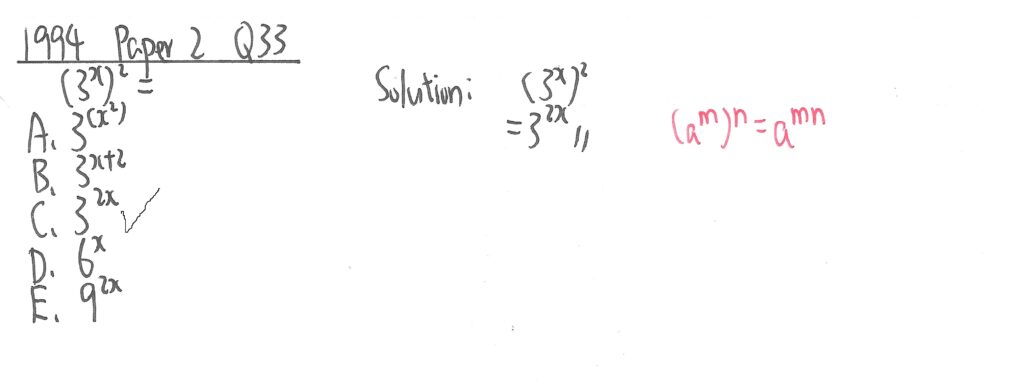 1994 Paper 2 Q33
(3^x)^2 =
A. 3^(x^2)
B. 3^x+2
C. 3^2x ✓
D. 6^x
E. 9^2x
Solution: (3^x)^2
= 3^2x //
(a^m)^n = a^mn